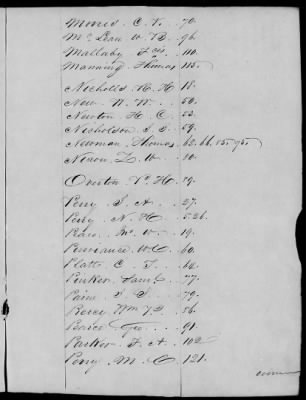 Morris C. V. 70.
McLean W. B. 96.
Mallaby Fcis. 110.
Manning Thomas 115.
Nicholls R. H 18.
New N. W. 50.
Newton H. C. 53.
Nicholson S. S. 59.
Newman Thomas 62. 66. 85. 95.
Nixon Z. W. 80.
Overton P. H. 89.
Perry J. A. 27.
Perry N. H. 5. 26.
W. 19.
Purviance W. C. 60.
Platt C. T. 64.
Pinker Saml. 77.
Pain J. S. 79.
Percy Wm 56.
Geo. 91.
Parker F. A. 102
Perry M. C. 121.